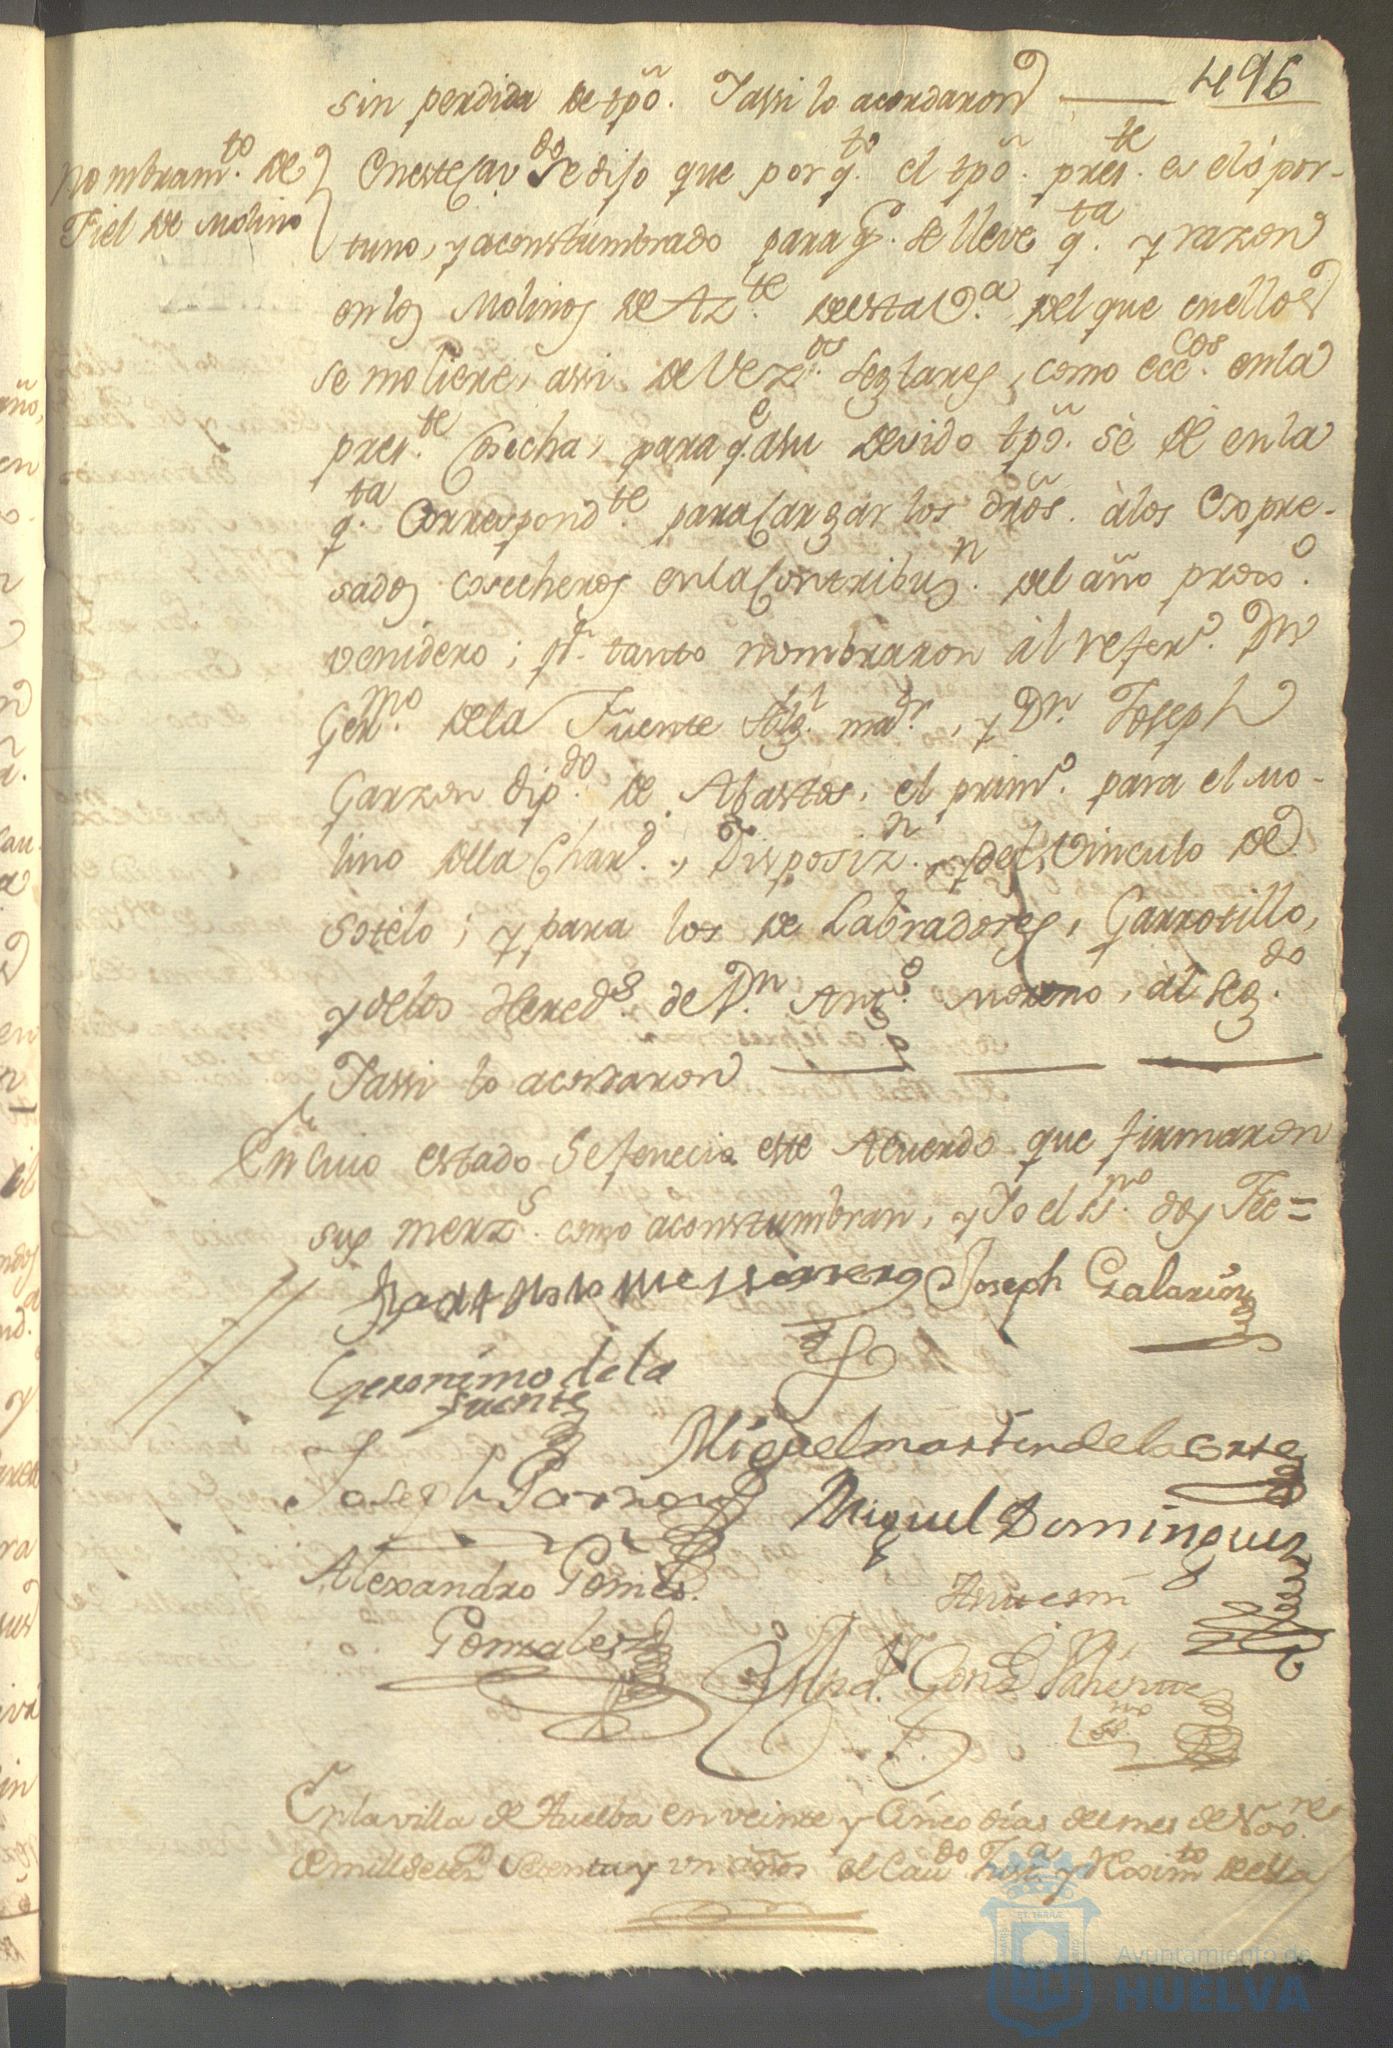 496
sin perdida de tpõ. Yassi lo acordaron
Nombram.to de
Fiel de Molino
Eneste Cav.do Se dijo que por q.to el tpõ. pres.te es el ópor-
tuno, y aconstumbrado para q.e se lleve q.ta y razon
en los Molinos de Az.te de esta V.a del que en ellos
se moliere, assi de Vez.os Seglares, como ecc.cos en la
pres.te Cosecha, para q.e a su devido tpõ. sè dè en la
q.ta Correspond.te para Cargar los drõs. à los Expre-
sados cosecheros en la Contribuz.n del año prox.o
venidero; p.r tanto nombraron àl refer.o Dn
Ger.mo de la Fuente Alg.l ma.r, y Dn. Joseph
Garzon dip.do de Abastos, el prim.o para el Mo-
lino de la Char.d, Disposiz.n, y del Vinculo de
Sotelo; y para los de Labradores, Garrotillo,
y de los Hered.s de Dn Ant.o Moreno, àl Seg.do
Yassi lo acordaron
En Cuio estado Se fenecio este Acuerdo que firmaron
sus merz.s como aconstumbran, y Yo el ss.no doy Fee =
Joseph Galarin
Geronimo de la
fuente
Miguel martin de la corte
Joseph Garzon
Miguel Dominguez
Alexandro Gomes
Gonzales
Ante mi
Gonz
ss.no
En la villa de Huelba en veinte y Cinco dias del mes de Nov.re
de mill setez.s Setenta y un años el Cav.do Just.a y Rexim.to de ella
Ayuntamiento de
HUELVA